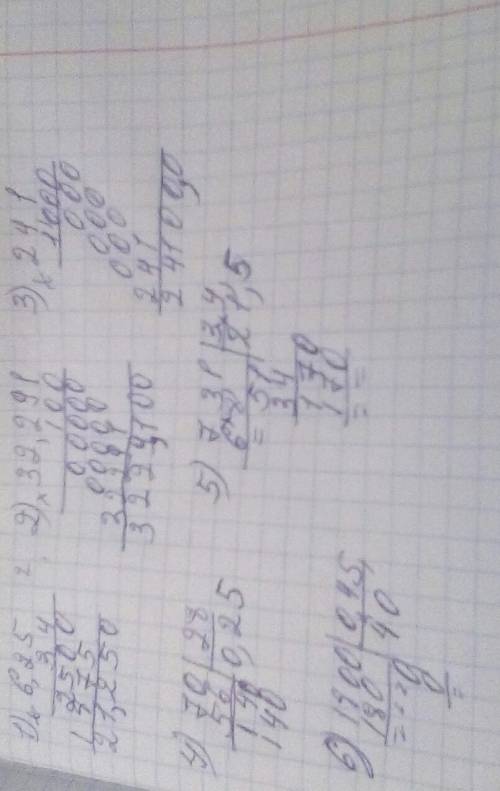 1) x 6,25
3 4
2500
1875
21,250
2) x 32,291
100
3229,100
3) x 241
1000
000
000
000
241
4) 70 | 28
56 | 0,25
140
140
5) 731 | 34
68 | 21,5
= 51
34
170
170
= =
6) | 0,45
180 | 40
0
0
=